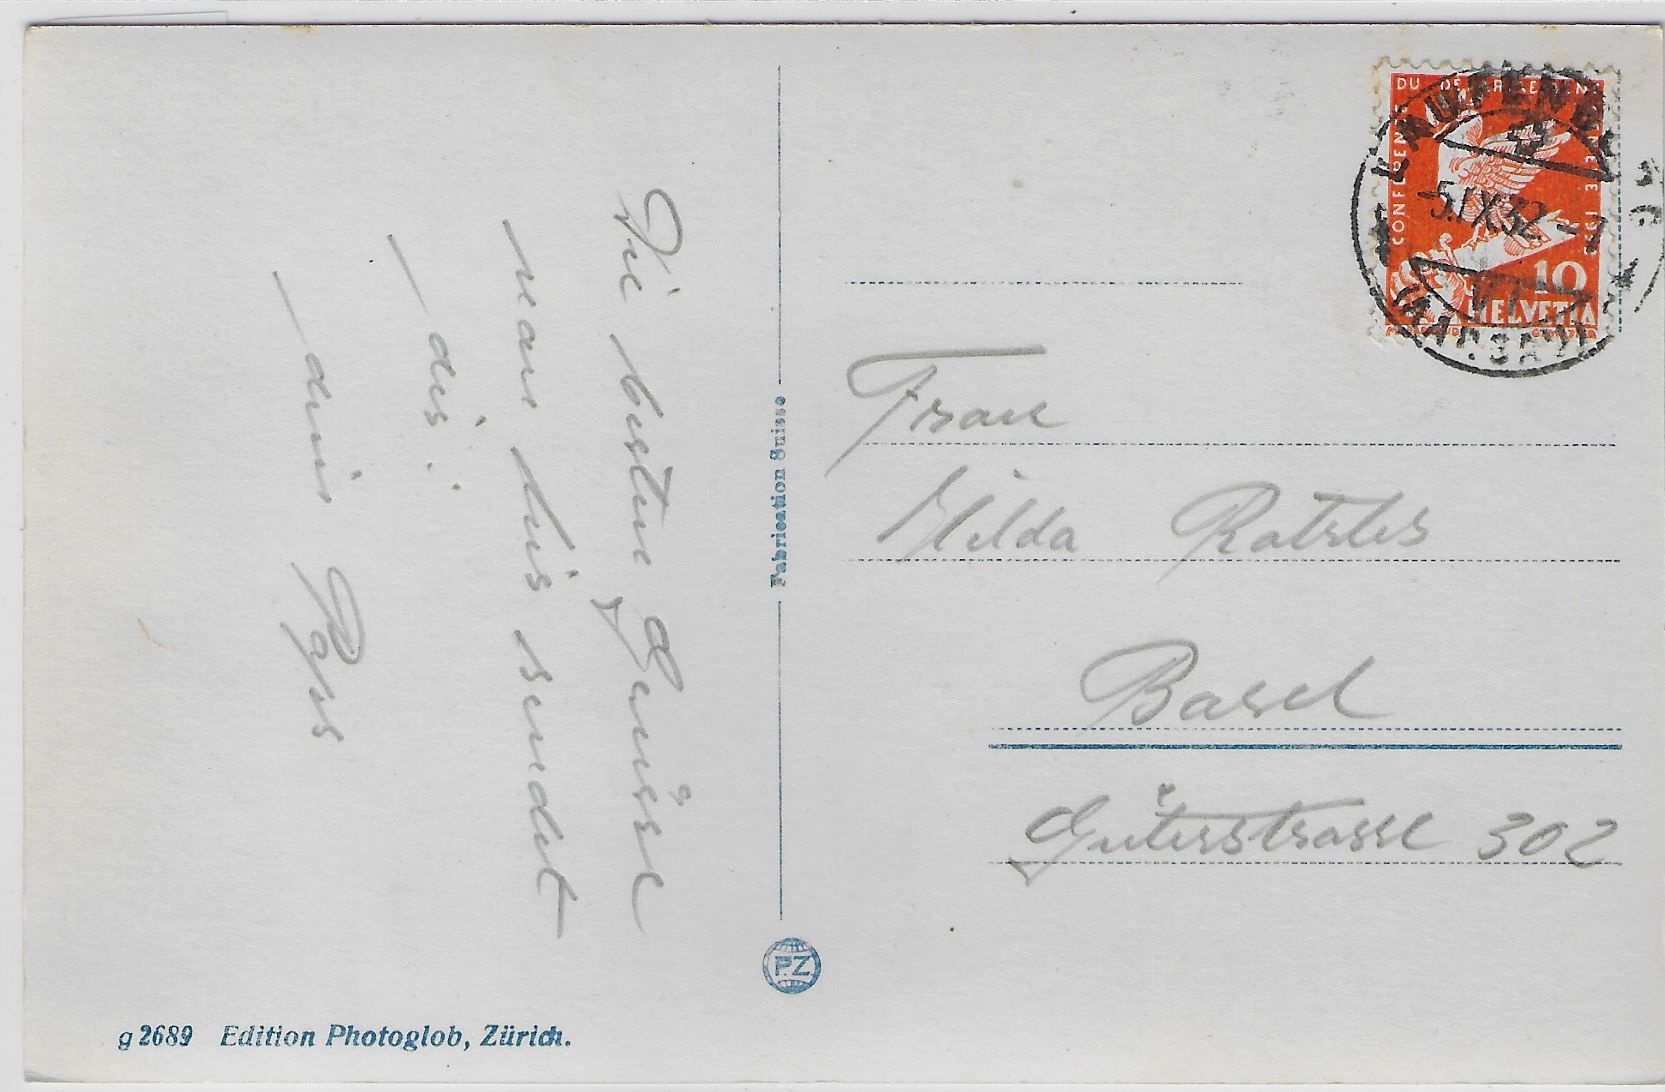 Die besten Grüsse
von hier sendet
dir.
dein
Fabrication Suisse
PZ
g 2689 Edition Photoglob, Zürich.
CONFERENCE DU DESARMEMENT GENEVE 1932
10
HELVETIA
LAUFENBURG
-5.IX.32.-7
(AARGAU)
Frau
Hilda
Basel
Güterstrasse 302